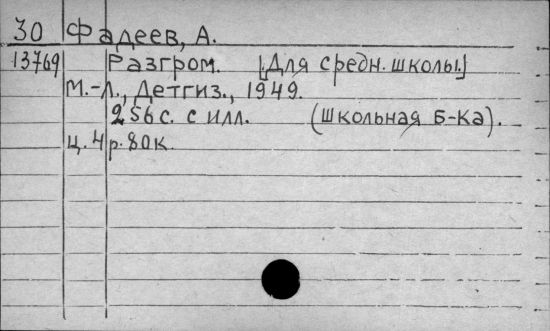 30 Фадеев, А.
13769 Разгром. [Для средн. школы.]
М.-Л., Детгиз., 1949.
256 с. с илл. (Школьная Б-ка).
Ц. 4 р. 80 к.